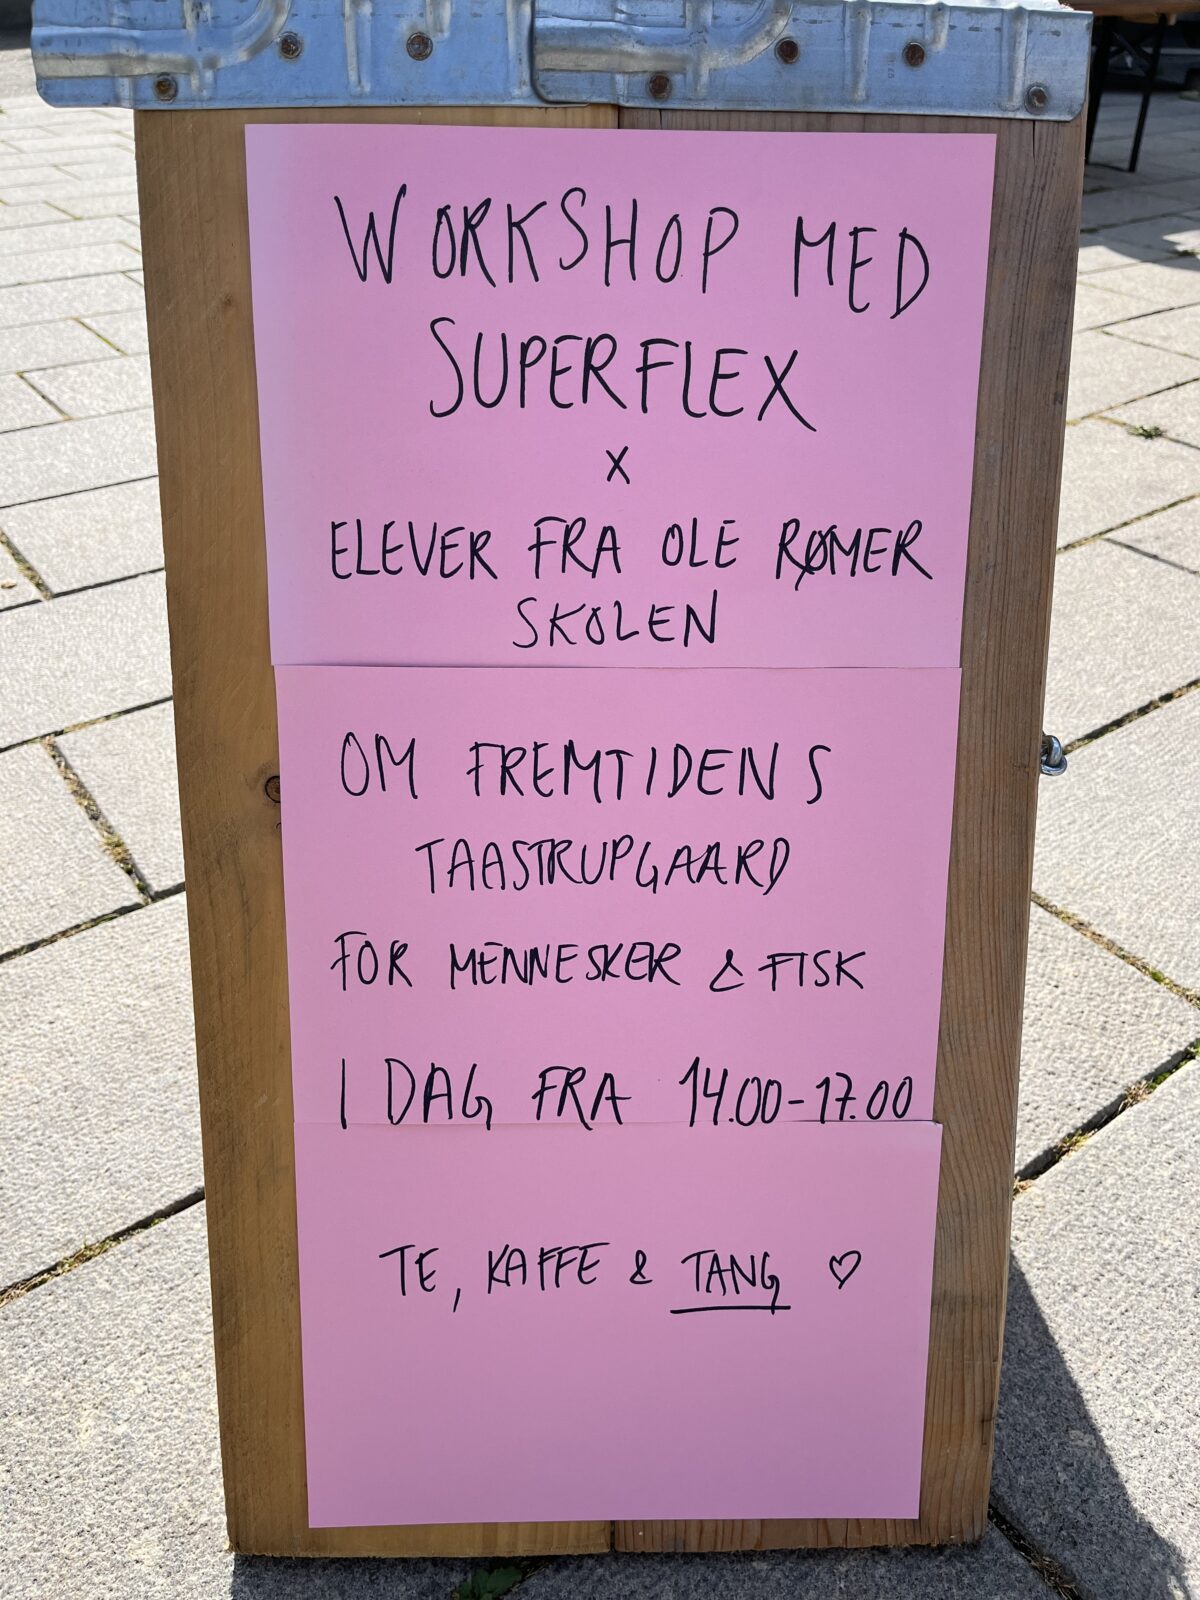 WORKSHOP MED
SUPERFLEX
X
ELEVER FRA OLE RØMER
SKOLEN
OM FREMTIDENS
TAASTRUPGAARD
FOR MENNESKER & FISK
I DAG FRA 14.00-17.00
TE, KAFFE & TANG ♡